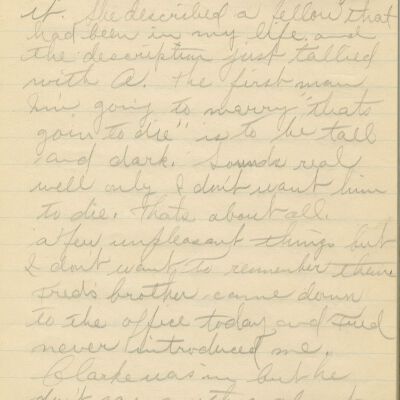 it. She described a fellow "that
had been in my life, and
the description just tallied
with A. The first man
Im going to marry "thats
goin to die" is to be tall
and dark. Sounds real
well only I don't want him
to die. Thats about all.
a few unpleasant things but
I dont want to remember them.
Fred's brother came down
to the office today and Fred
never introduced me.
Clarke was in, but he